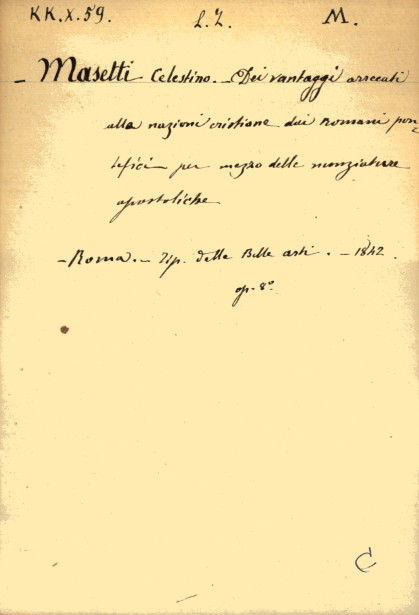 KK.X.59. L.I. M.
- Masetti Celestino. - Dei vantaggi arrecati
alla nazioni cristiane dai Romani pon-
tefici per mezzo delle nunziature
apostoliche
- Roma. - Tip. delle Belle arti. - 1842.
op. 8°
C